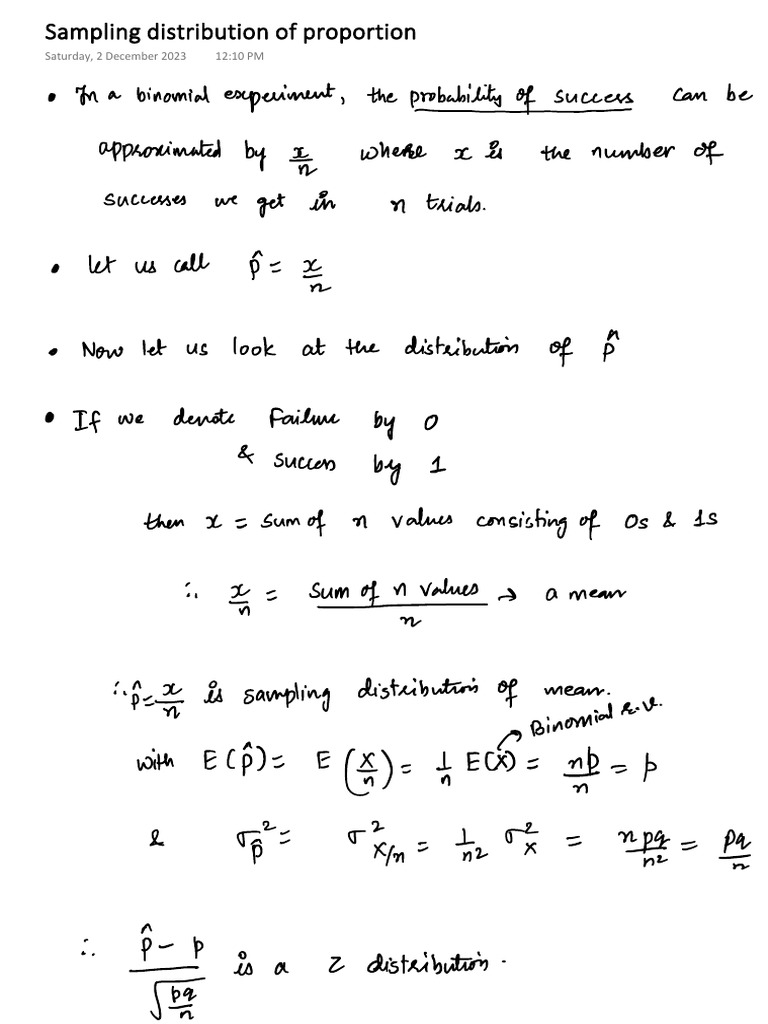 Sampling distribution of proportion
Saturday, 2 December 2023 12:10 PM
• In a binomial experiment, the probability of success can be
approximated by x/n where x is the number of
successes we get in n trials.
• let us call p̂ = x/n
• Now let us look at the distribution of p̂
• If we denote Failure by 0
& success by 1
then x = sum of n values consisting of 0s & 1s
∴ x/n = sum of n values / n → a mean
∴ p̂ = x/n is sampling distribution of mean.
Binomial r.v.
with E(p̂) = E(X/n) = 1/n E(X) = np/n = p
& σ²p̂ = σ²X/n = 1/n² σ²X = npq/n² = pq/n
∴ p̂ - p / √(pq/n) is a Z distribution.